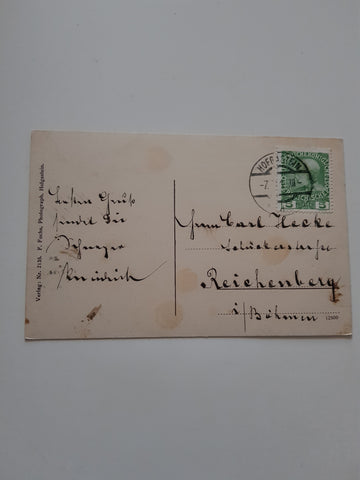 Verlag: Nr. 7135. F. Fuchs, Photograph, Hofgastein.
Besten Gruß
sendet Dir
Schwager
Heinrich
HOFGASTEIN
5
5
Herrn Carl Hecke
Reichenberg
i/Böhmen
12800